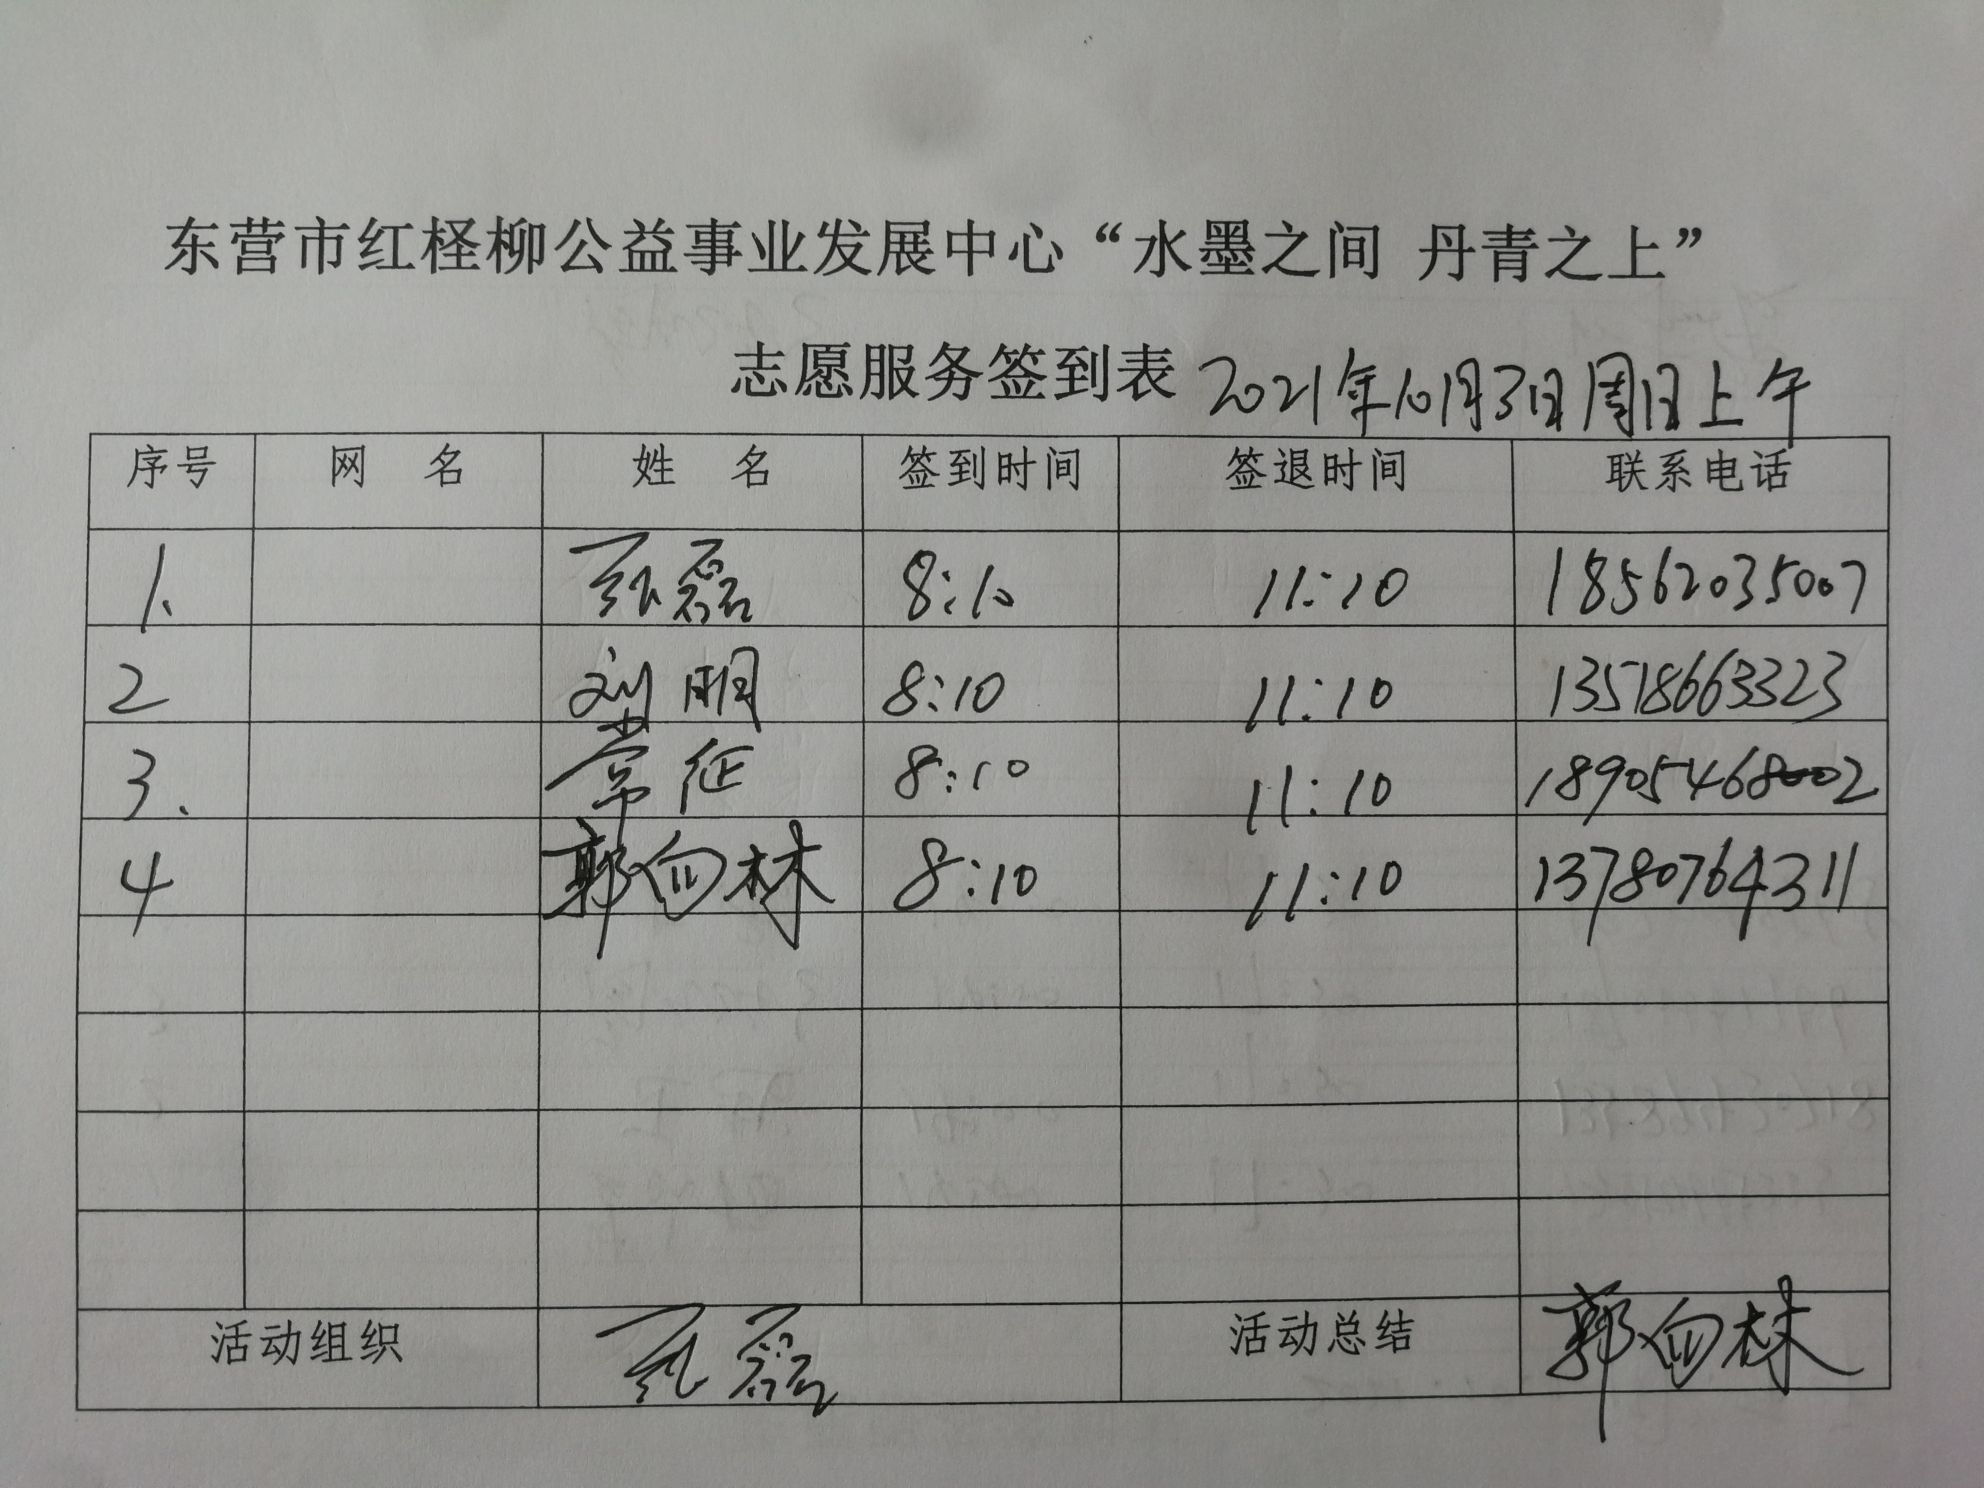 东营市红柽柳公益事业发展中心“水墨之间 丹青之上”
志愿服务签到表 2021年10月3日周日上午
序号 网 名 姓 名 签到时间 签退时间 联系电话
1. 张磊 8:10 11:10 18562035007
2 刘明 8:10 11:10 13518663323
3. 常征 8:10 11:10 18905468002
4 郭向林 8:10 11:10 13780764311
活动组织 张磊 活动总结 郭向林